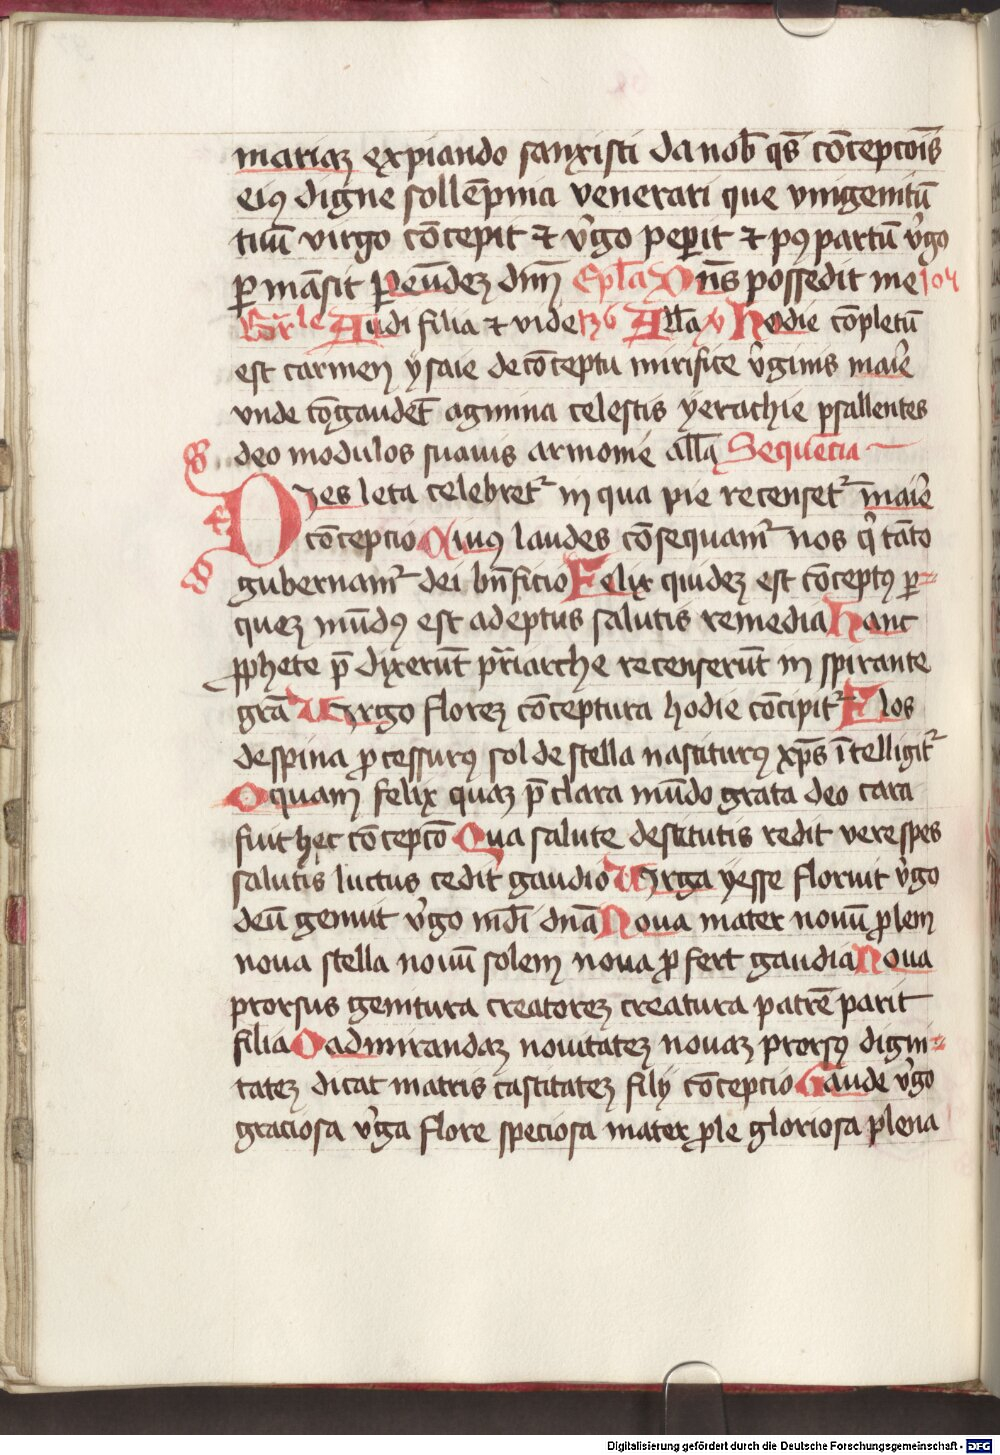 mariaꝫ expiando sanxisti da nob̄ qs̄ cōceptōis̄
eiꝯ digne sollēpnia venerari que vnigenitū
tuū virgo cōcepit ⁊ v̓go peꝑit ⁊ pꝯ partū v̓go
ꝑmāsit ꝑ eūdeꝫ dnm̄ Epl̄a Dn̄s possedit me 104
Gr̄le Audi filia ⁊ vide 136 All̄a v̓ Hodie cōpletū
est carmen ysaie de cōceptu mirifice v̓ginis maīe
vnde cōgaudēt agmina celestis yerachie psallentes
deo modulos suauis armonie all̄a Sequēcia
Dies leta celebret᷑ in qua pie recenset᷑ maīe
cōcepcio Cuiꝯ laudes cōsequam᷑ nos qͥ tāto
gubernam᷑ dei bn̄ficio Felix quideꝫ est cōceptꝯ ꝑ
queꝫ mūdꝯ est adeptus salutis remedia Hanc
ꝓphete p̄dixerūt pr̄iarche recenserūt inspirante
grā Virgo floreꝫ cōceptura hodie cōcipit᷑ Flos
de spina ꝓcessurꝯ sol de stella nasciturꝯ xp̄s ītelligit᷑
O quam felix quaꝫ p̄clara mūdo grata deo cara
fuit hec cōcepcō Qua salute destitutis redit vere spes
salutis luctus cedit gaudio Virga yesse floruit v̓go
deū genuit v̓go mūdī dnā Noua mater nouū ꝓlem
noua stella nouū solem noua ꝓfert gaudia Noua
prorsus genitura creatoreꝫ creatura patrē parit
filia O admirandaꝫ nouitateꝫ nouaꝫ prorsꝯ digni-
tateꝫ dicat matris castitateꝫ filij cōcepcio Gaude v̓go
graciosa v̓ga flore speciosa mater ꝓle gloriosa plena
Digitalisierung gefördert durch die Deutsche Forschungsgemeinschaft - DFG